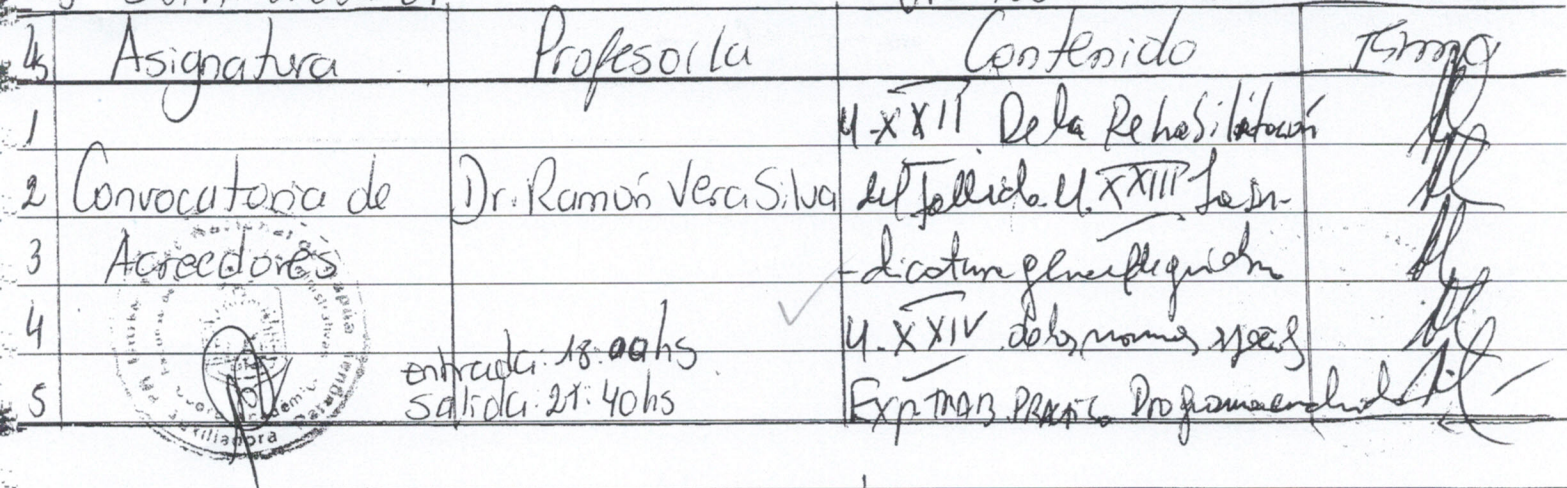 Asignatura Profesor/la Contenido Firma
1 U.XXII De la Rehabilitación
2 Convocatoria de Dr. Ramón Vera Silva del fallido. U. XXIII La sin-
3 Acreedores -dicatura general de quiebra
4 U.XXIV de las normas
entrada: 18:00hs
5 salida: 21:40hs Exp. TRAB. PRACTC. Programa